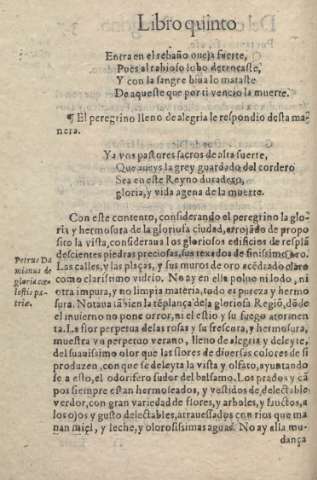 Libro quinto
Entra en el rebaño oueja fuerte,
Pues al rabioso lobo detenaste,
Y con la sangre biua lo mataste
De aqueste que por ti vencio la muerte.
¶ El peregrino lleno de alegria le respondio desta ma
nera.
Ya vos pastores sacros de alta suerte,
Que aueys la grey guardado del cordero
Sea en este Reyno duradero,
gloria, y vida agena de la muerte.
Con este contento, considerando el peregrino la glo
ria y hermosura de la gloriosa ciudad, arrojado de propo
sito la vista, consideraua los gloriosos edificios de resplã
descientes piedras preciosas, sus texados de finissimo oro.
Las calles, y las plaças, y sus muros de oro acẽdrado claro
como clarissimo vidrio. No ay en ella poluo ni lodo, ni
otra impura, y no limpia materia, todo es pureza y hermo
sura. Notaua tãbien la tẽplança de la gloriosa Regiõ, dõde
el inuierno no pone orror, ni el estio y su fuego atormen
ta. La flor perpetua delas rosas y su frescura, y hermosura,
muestra vn perpetuo verano, lleno de alegria y deleyte,
del suauissimo olor que las flores de diuersas colores de si
produzen, con que se deleyta la vista y olfato, ayuntando
se a esto, el odorifero sudor del balsamo. Los prados y cã
pos siempre estan hermoseados, y vestidos de delectable
verdor, con gran variedad de flores, y arboles, y fauctos, a
los ojos y gusto delectables, atrauessados con rios que ma
nan miel, y leche, y olorosissimas aguas. No ay ella mu
dança
Petrus Da
mianus de
gloria cæ
lestis pa-
triæ.